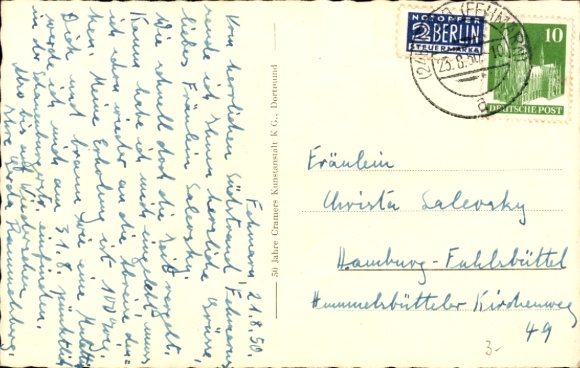 Fehmarn, 21.8.50.
Vom herrlichen Südstrand Fehmarns
sende ich Ihnen herzliche Grüsse,
liebes Fräulein Salevsky.
Wie schnell doch die Zeit vergeht.
Kaum habe ich mich eingelebt, muss
ich schon wieder an die Abreise den-
ken. Meine Erholung ist 100%ig.
Dick und braun wie eine
werde ich mich am 31.8. pünktlich
in der einfinden.
Also bis auf Wiedersehen
Ihre
50 Jahre Cramers Kunstanstalt K G., Dortmund
NOTOPFER
2 BERLIN
STEUERMARKE
(FEHMARN)
23.8.50
10
DEUTSCHE POST
Fräulein
Christa Salevsky
Hamburg-Fuhlsbüttel
Hummelsbütteler Kirchenweg
49
3-